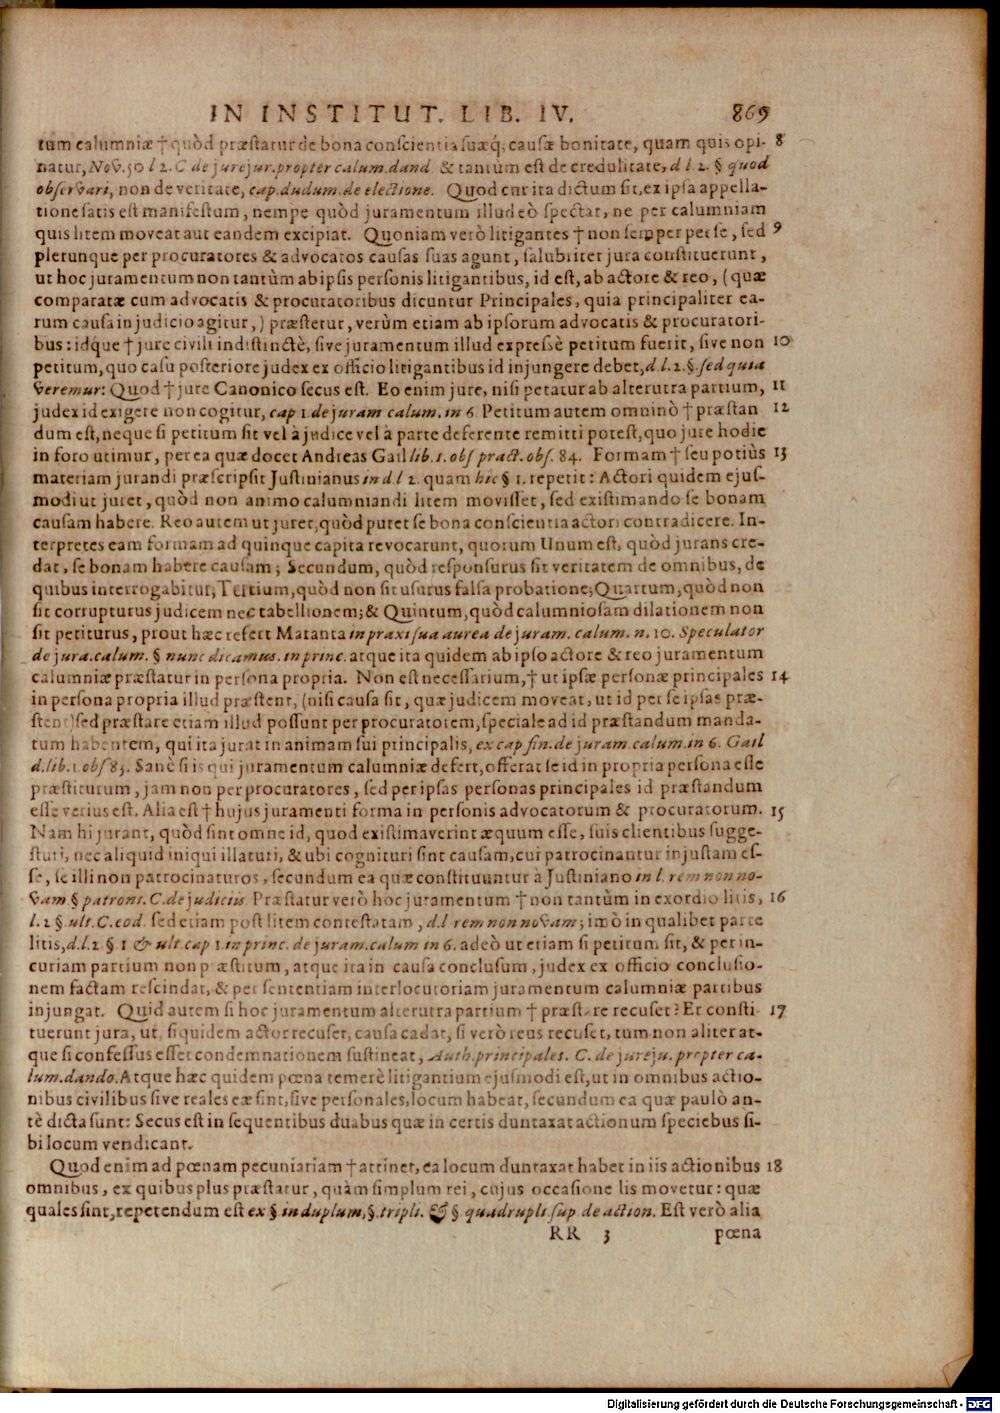 IN INSTITUT. LIB. IV. 869
tum calumniæ † quòd præstatur de bona conscientia suæq́; causæ bonitate, quam quis opi- 8
natur, Nov. 50 l 2. C de jurejur. propter calum. dand. & tantùm est de credulitate, d l 2. § quod
observari, non de veritate, cap. dudum. de electione. Quod cur ita dictum sit, ex ipsa appella-
tione satis est manifestum, nempe quòd juramentum illud eò spectat, ne per calumniam
quis litem moveat aut eandem excipiat. Quoniam verò litigantes † non semper per se, sed 9
plerunque per procuratores & advocatos causas suas agunt, salubriter jura constituerunt,
ut hoc juramentum non tantùm ab ipsis personis litigantibus, id est, ab actore & reo, (quæ
comparatæ cum advocatis & procuratoribus dicuntur Principales, quia principaliter ea-
rum causa in judicio agitur,) præstetur, verùm etiam ab ipsorum advocatis & procuratori-
bus: idque † jure civili indistinctè, sive juramentum illud expressè petitum fuerit, sive non 10
petitum, quo casu posteriore judex ex officio litigantibus id injungere debet, d. l. 2. §. sed quia
veremur: Quod † jure Canonico secus est. Eo enim jure, nisi petatur ab alterutra partium, 11
judex id exigere non cogitur, cap 1 de juram calum. in 6 Petitum autem omninò † præstan 12
dum est, neque si petitum sit vel à judice vel à parte deferente remitti potest, quo jure hodie
in foro utimur, per ea quæ docet Andreas Gail lib. 1. obs pract. obs. 84. Formam † seu potiùs 13
materiam jurandi præscripsit Justinianus in d. l 2. quam hic § 1. repetit: Actori quidem ejus-
modi ut juret, quòd non animo calumniandi litem movisset, sed existimando se bonam
causam habere. Reo autem ut juret, quòd putet se bona conscientia actori contradicere. In-
terpretes eam formam ad quinque capita revocarunt, quorum Unum est, quòd jurans cre-
dat, se bonam habere causam; Secundum, quòd responsurus sit veritatem de omnibus, de
quibus interrogabitur; Tertium, quòd non sit usurus falsa probatione; Quartum, quòd non
sit corrupturus judicem nec tabellionem; & Quintum, quòd calumniosam dilationem non
sit petiturus, prout hæc refert Maranta in praxi sua aurea de juram. calum. n. 10. Speculator
de jura. calum. § nunc dicamus. in princ. atque ita quidem ab ipso actore & reo juramentum
calumniæ præstatur in persona propria. Non est necessarium, † ut ipsæ personæ principales 14
in persona propria illud præstent, (nisi causa sit, quæ judicem moveat, ut id per se ipsas præ-
stent) sed præstare etiam illud possunt per procuratorem, speciale ad id præstandum manda-
tum habentem, qui ita jurat in animam sui principalis, ex cap fin. de juram. calum. in 6. Gail
d. lib. 1. obs 85. Sanè si is qui juramentum calumniæ defert, offerat se id in propria persona esse
præstiturum, jam non per procuratores, sed per ipsas personas principales id præstandum
esse verius est. Alia est † hujus juramenti forma in personis advocatorum & procuratorum. 15
Nam hi jurant, quòd sint omne id, quod existimaverint æquum esse, suis clientibus sugge-
sturi, nec aliquid iniqui illaturi, & ubi cognituri sint causam, cui patrocinantur injustam es-
se, se illi non patrocinaturos, secundum ea quæ constituuntur à Justiniano in l. rem non no-
vam § patroni. C. de judiciis Præstatur verò hoc juramentum † non tantùm in exordio litis, 16
l. 2 §. ult. C. eod. sed etiam post litem contestatam, d. l rem non novam; imò in qualibet parte
litis, d. l. 2 § 1 & ult. cap 1 in princ. de juram. calum in 6. adeò ut etiam si petitum sit, & per in-
curiam partium non p æstitum, atque ita in causa conclusum, judex ex officio conclusio-
nem factam rescindat, & per sententiam interlocutoriam juramentum calumniæ partibus
injungat. Quid autem si hoc juramentum alterutra partium † præstare recuset? Et consti 17
tuerunt jura, ut, siquidem actor recuset, causa cadat, si verò reus recuset, tum non aliter at-
que si confessus esset condemnationem sustineat, Auth. principales. C. de jureju. propter ca-
lum. dando. Atque hæc quidem pœna temerè litigantium ejusmodi est, ut in omnibus actio-
nibus civilibus sive reales eæ sint, sive personales, locum habeat, secundum ea quæ paulò an-
tè dicta sunt: Secus est in sequentibus duabus quæ in certis duntaxat actionum speciebus si-
bi locum vendicant.
Quod enim ad pœnam pecuniariam † attinet, ea locum duntaxat habet in iis actionibus 18
omnibus, ex quibus plus præstatur, quàm simplum rei, cujus occasione lis movetur: quæ
quales sint, repetendum est ex § in duplum, §. tripli. & § quadrupli. sup. de action. Est verò alia
RR 3 pœna
Digitalisierung gefördert durch die Deutsche Forschungsgemeinschaft - DFG